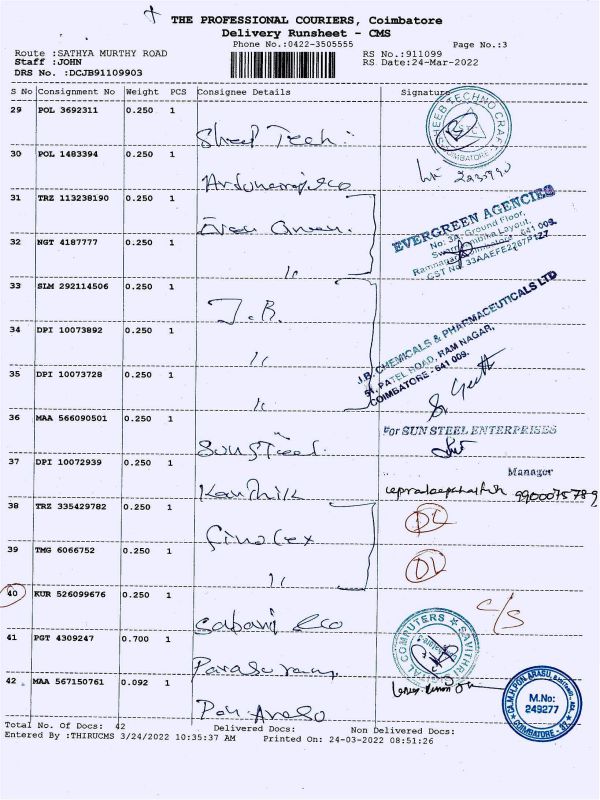 THE PROFESSIONAL COURIERS, Coimbatore
Delivery Runsheet - CMS
Phone No.:0422-3505555 Page No.:3
Route :SATHYA MURTHY ROAD RS No.:911099
Staff :JOHN RS Date:24-Mar-2022
DRS No. :DCJB91109903
S No Consignment No Weight PCS Consignee Details Signature
29 POL 3692311 0.250 1
Sheeb Tech
30 POL 1483394 0.250 1
31 TRZ 113238190 0.250 1
32 NGT 4187777 0.250 1
EVERGREEN AGENCIES
No: 3A, Ground Floor,
Swarnambika Layout,
Ramnagar, Coimbatore - 641 009.
GST No
33 SLM 292114506 0.250 1
J.B.
34 DPI 10073892 0.250 1
35 DPI 10073728 0.250 1
J.B. CHEMICALS & PHARMACEUTICALS LTD
51, PATEL ROAD, RAM NAGAR,
COIMBATORE - 641 009.
36 MAA 566090501 0.250 1
Sun Steel
For SUN STEEL ENTERPRISES
Manager
37 DPI 10072939 0.250 1
Karthik
38 TRZ 335429782 0.250 1
finolex
DL
39 TMG 6066752 0.250 1
DL
40 KUR 526099676 0.250 1
C/S
41 PGT 4309247 0.700 1
Parasuram
COMPUTERS
42 MAA 567150761 0.092 1
Pon Arasu
M.No:
249277
Total No. Of Docs: 42 Delivered Docs: Non Delivered Docs:
Entered By :THIRUCMS 3/24/2022 10:35:37 AM Printed On: 24-03-2022 08:51:26